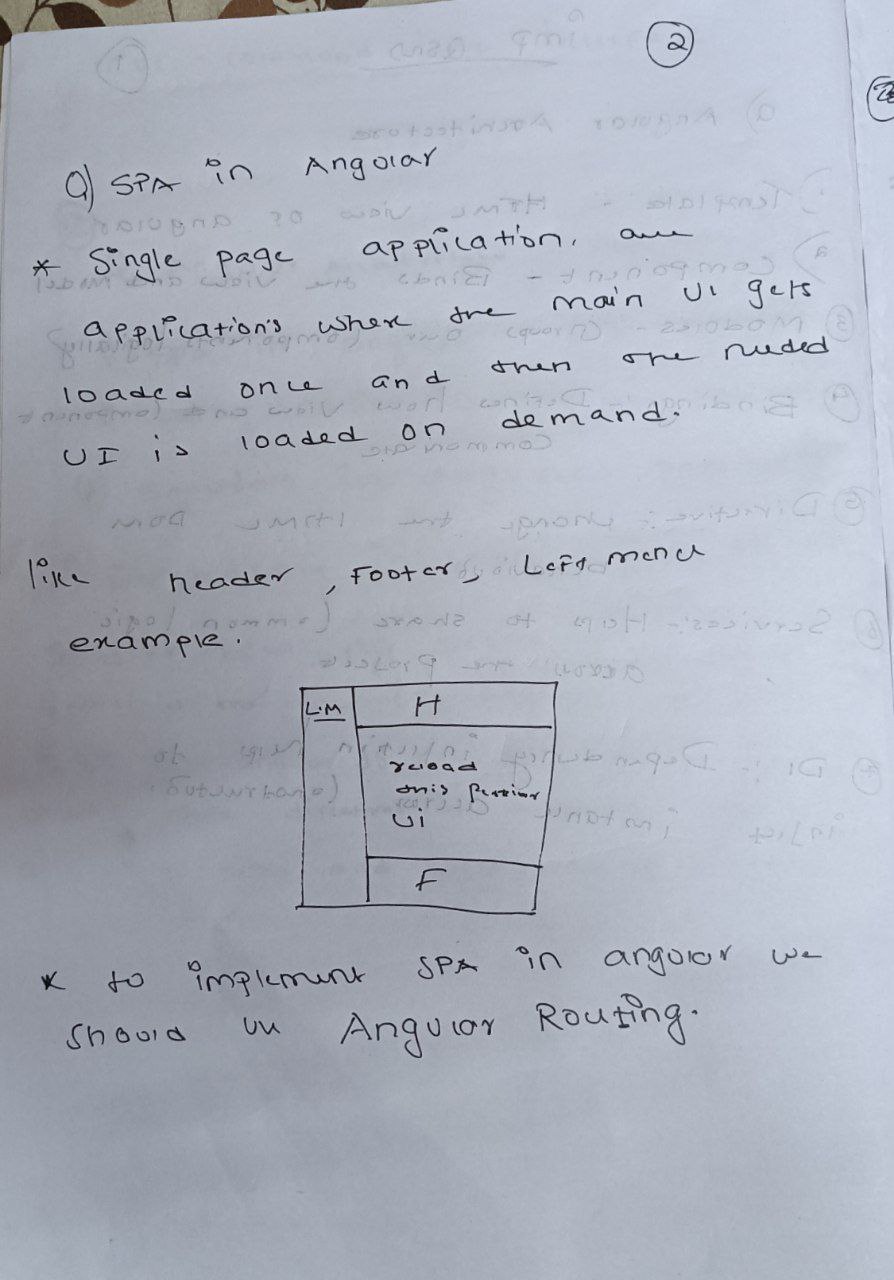 2
Q) SPA in Angular
* Single page application, are
applications where the main UI gets
loaded once and then the needed
UI is loaded on demand.
like header, Footer, Left menu
example.
L.M H
reload
this portion
UI
F
* to implement SPA in angular we
should use Angular Routing.